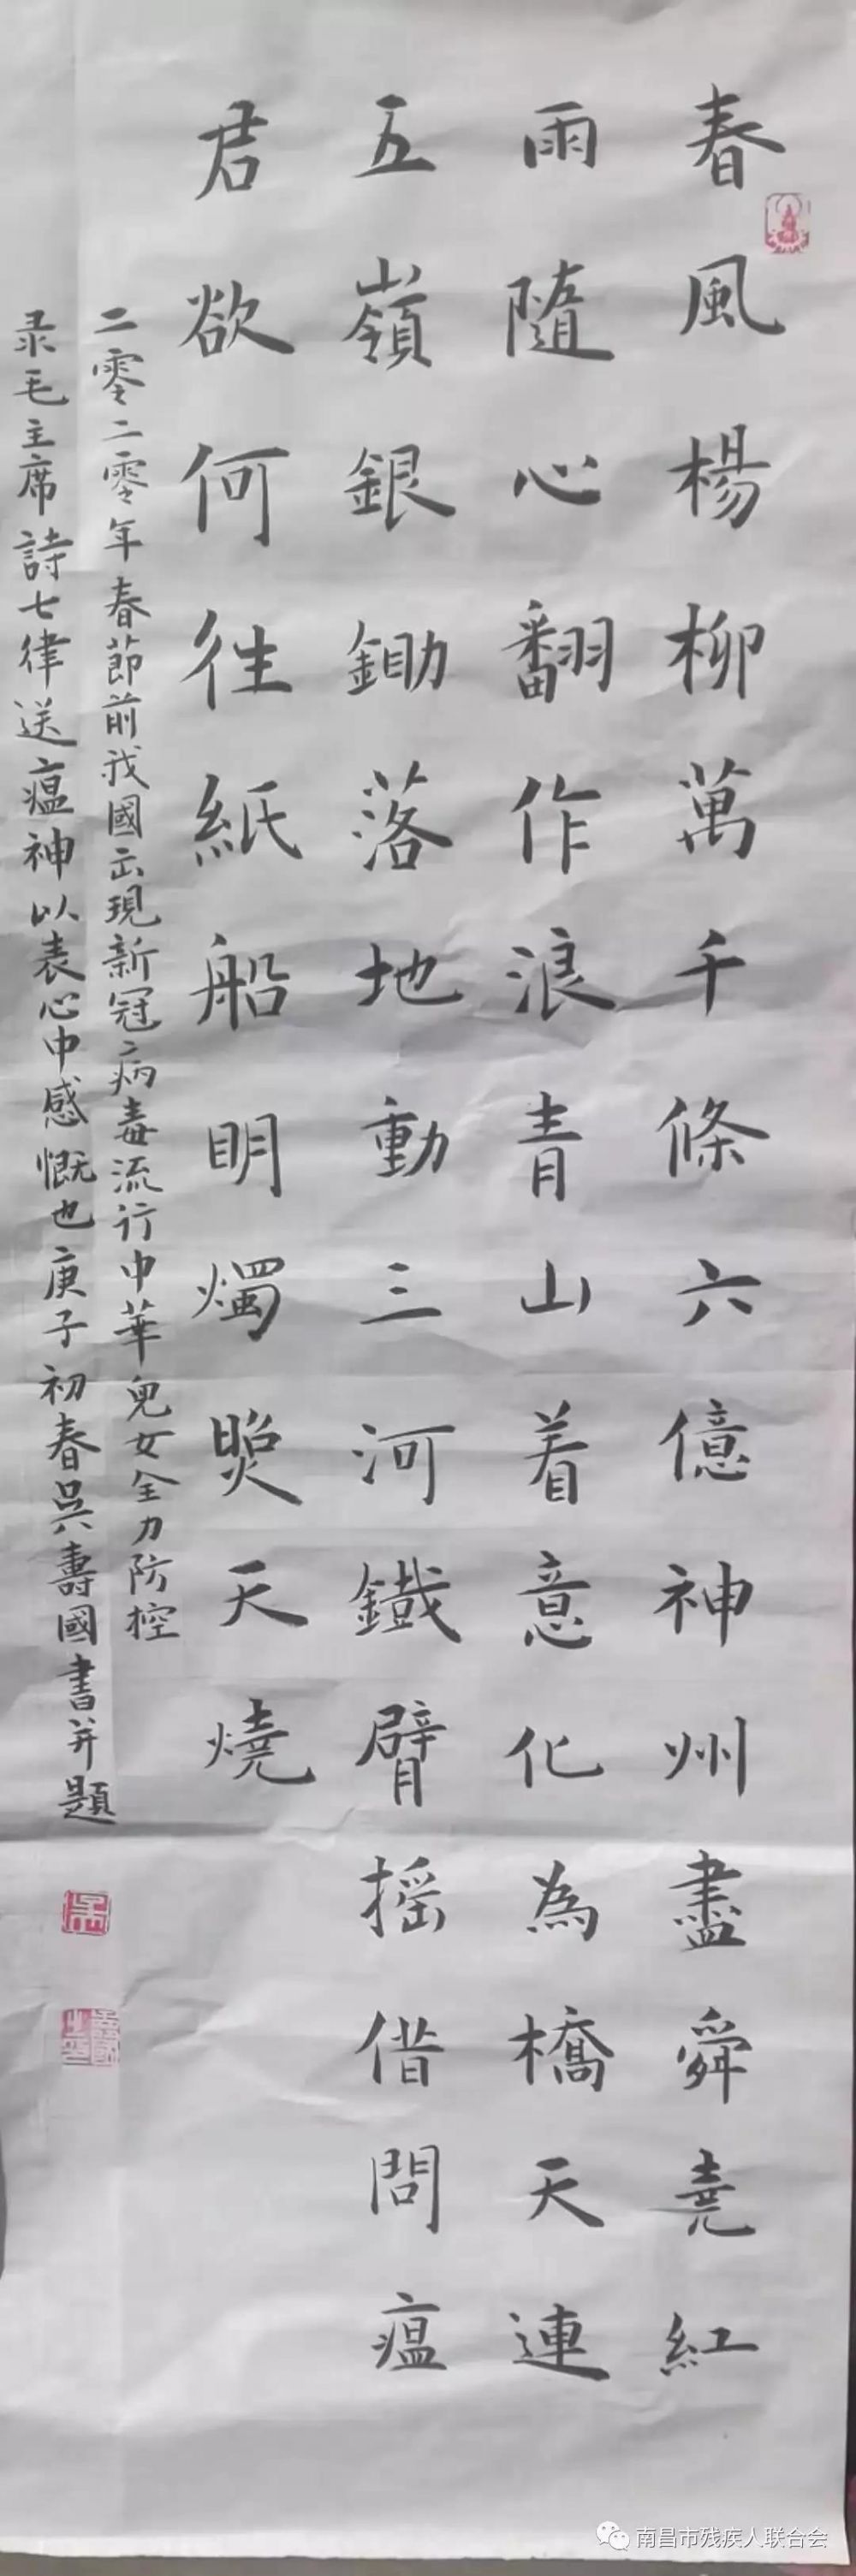 春風楊柳萬千條六億神州盡舜堯紅
雨隨心翻作浪青山着意化為橋天連
五嶺銀鋤落地動三河鐵臂摇借問瘟
君欲何往紙船明燭照天燒
二零二零年春節前我國出現新冠病毒流行中華兒女全力防控
录毛主席詩七律送瘟神以表心中感慨也庚子初春吳壽國書并題
南昌市残疾人联合会